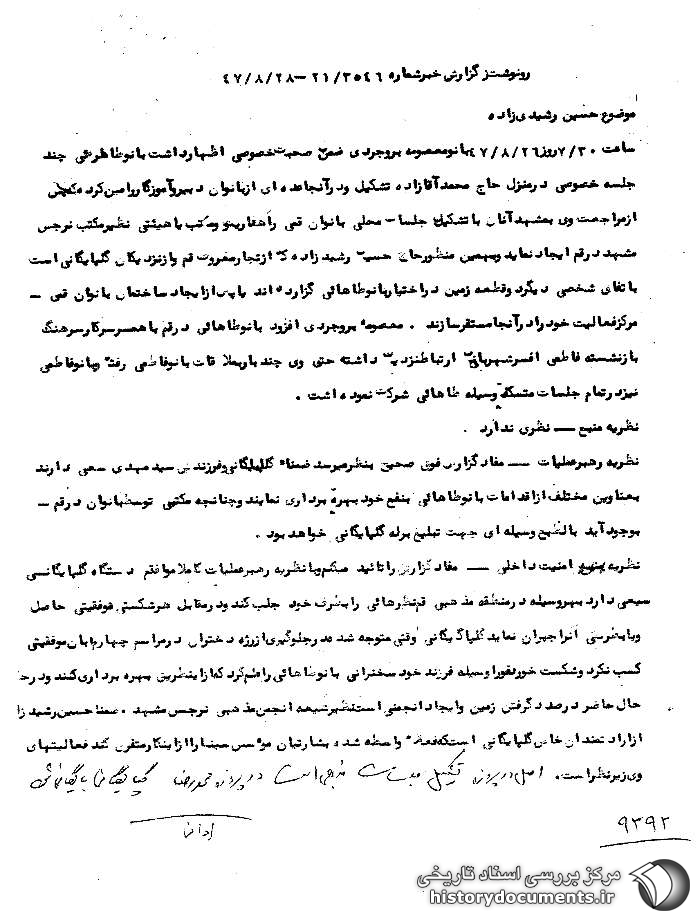 رونوشت گزارش خبر شماره ۲۱/۳۵۴۶ – ۴۷/۸/۲۸
موضوع حسین رشیدی‌زاده
ساعت ۷/۳۰ روز ۴۷/۸/۲۶ بانو معصومه بروجردی ضمن صحبت خصوصی اظهار داشت بانو طاهائی چند
جلسه خصوصی در منزل حاج محمد آقازاده تشکیل و در آنجا عده ای از بانوان دبیر و آموزگار را معین کرده که پس
از مراجعت وی به مشهد آنان با تشکیل جلسات محلی بانوان قمی را و مکتب یا هیئتی نظیر مکتب نرجس
مشهد در قم ایجاد نماید و بهمین منظور حاج حسین رشیدزاده که از تجار معروف قم و از نزدیکان گلپایگانی است
باتفاق شخصی دیگر دو قطعه زمین در اختیار بانو طاهائی گزارده اند تا پس از ایجاد ساختمان بانوان قمی –
مرکز فعالیت خود را در آنجا مستقر سازند . معصومه بروجردی افزود بانو طاهائی در قم با همسر سرکار سرهنگ
بازنشسته فاطمی افسر شهربانی ارتباط نزدیک داشته حتی وی چند بار بملاقات بانو فاطمی رفته و بانو فاطمی
نیز در تمام جلسات متشکله وسیله طاهائی شرکت نموده است .
نظریه منبع — نظری ندارد .
نظریه رهبر عملیات — مفاد گزارش فوق صحیح بنظر میرسد ضمناً گلپایگانی و فرزندش سید مهدی سعی دارند
بعناوین مختلف از اقدامات بانو طاهائی بنفع خود بهره برداری نمایند و چنانچه مکتبی توسط بانوان در قم –
بوجود آید بالطبع وسیله ای جهت تبلیغ برله گلپایگانی خواهد بود .
نظریه امنیت داخلی — مفاد گزارش را تائید میکنم و با نظریه رهبر عملیات کاملا موافقم دستگاه گلپایگانی
سعی دارد بهر وسیله در منطقه مذهبی قم نظرهائی را بطرف خود جلب کند و در مقابل هر شکستی موفقیتی حاصل
و بایطریقی آنرا جبران نماید گلپایگانی وقتی متوجه شد در جلوگیری از رژه دختران در مراسم چهارم آبان موفقیتی
کسب نکرد و شکست خورد فورا وسیله فرزند خود سخنرانی بانو طاهائی را علم کرد که از اینطریق بهره برداری کند و در
حال حاضر درصدد گرفتن زمین و ایجاد انجمنی است نظیر شیعه انجمن مذهبی نرجس مشهد . ضمنا حسین رشیدزا
از ارادتمندان خاص گلپایگانی است که فعلا واسطه شده بشارتیان موسس سینما را از اینکار منصرف کند فعالیتهای
وی زیر نظر است . اصل در پرونده تشکیل جلسات مذهبی است در پرونده محمدرضا گلپایگانی بایگانی شود
۹۳۹۲
مرکز بررسی اسناد تاریخی
historydocuments.ir